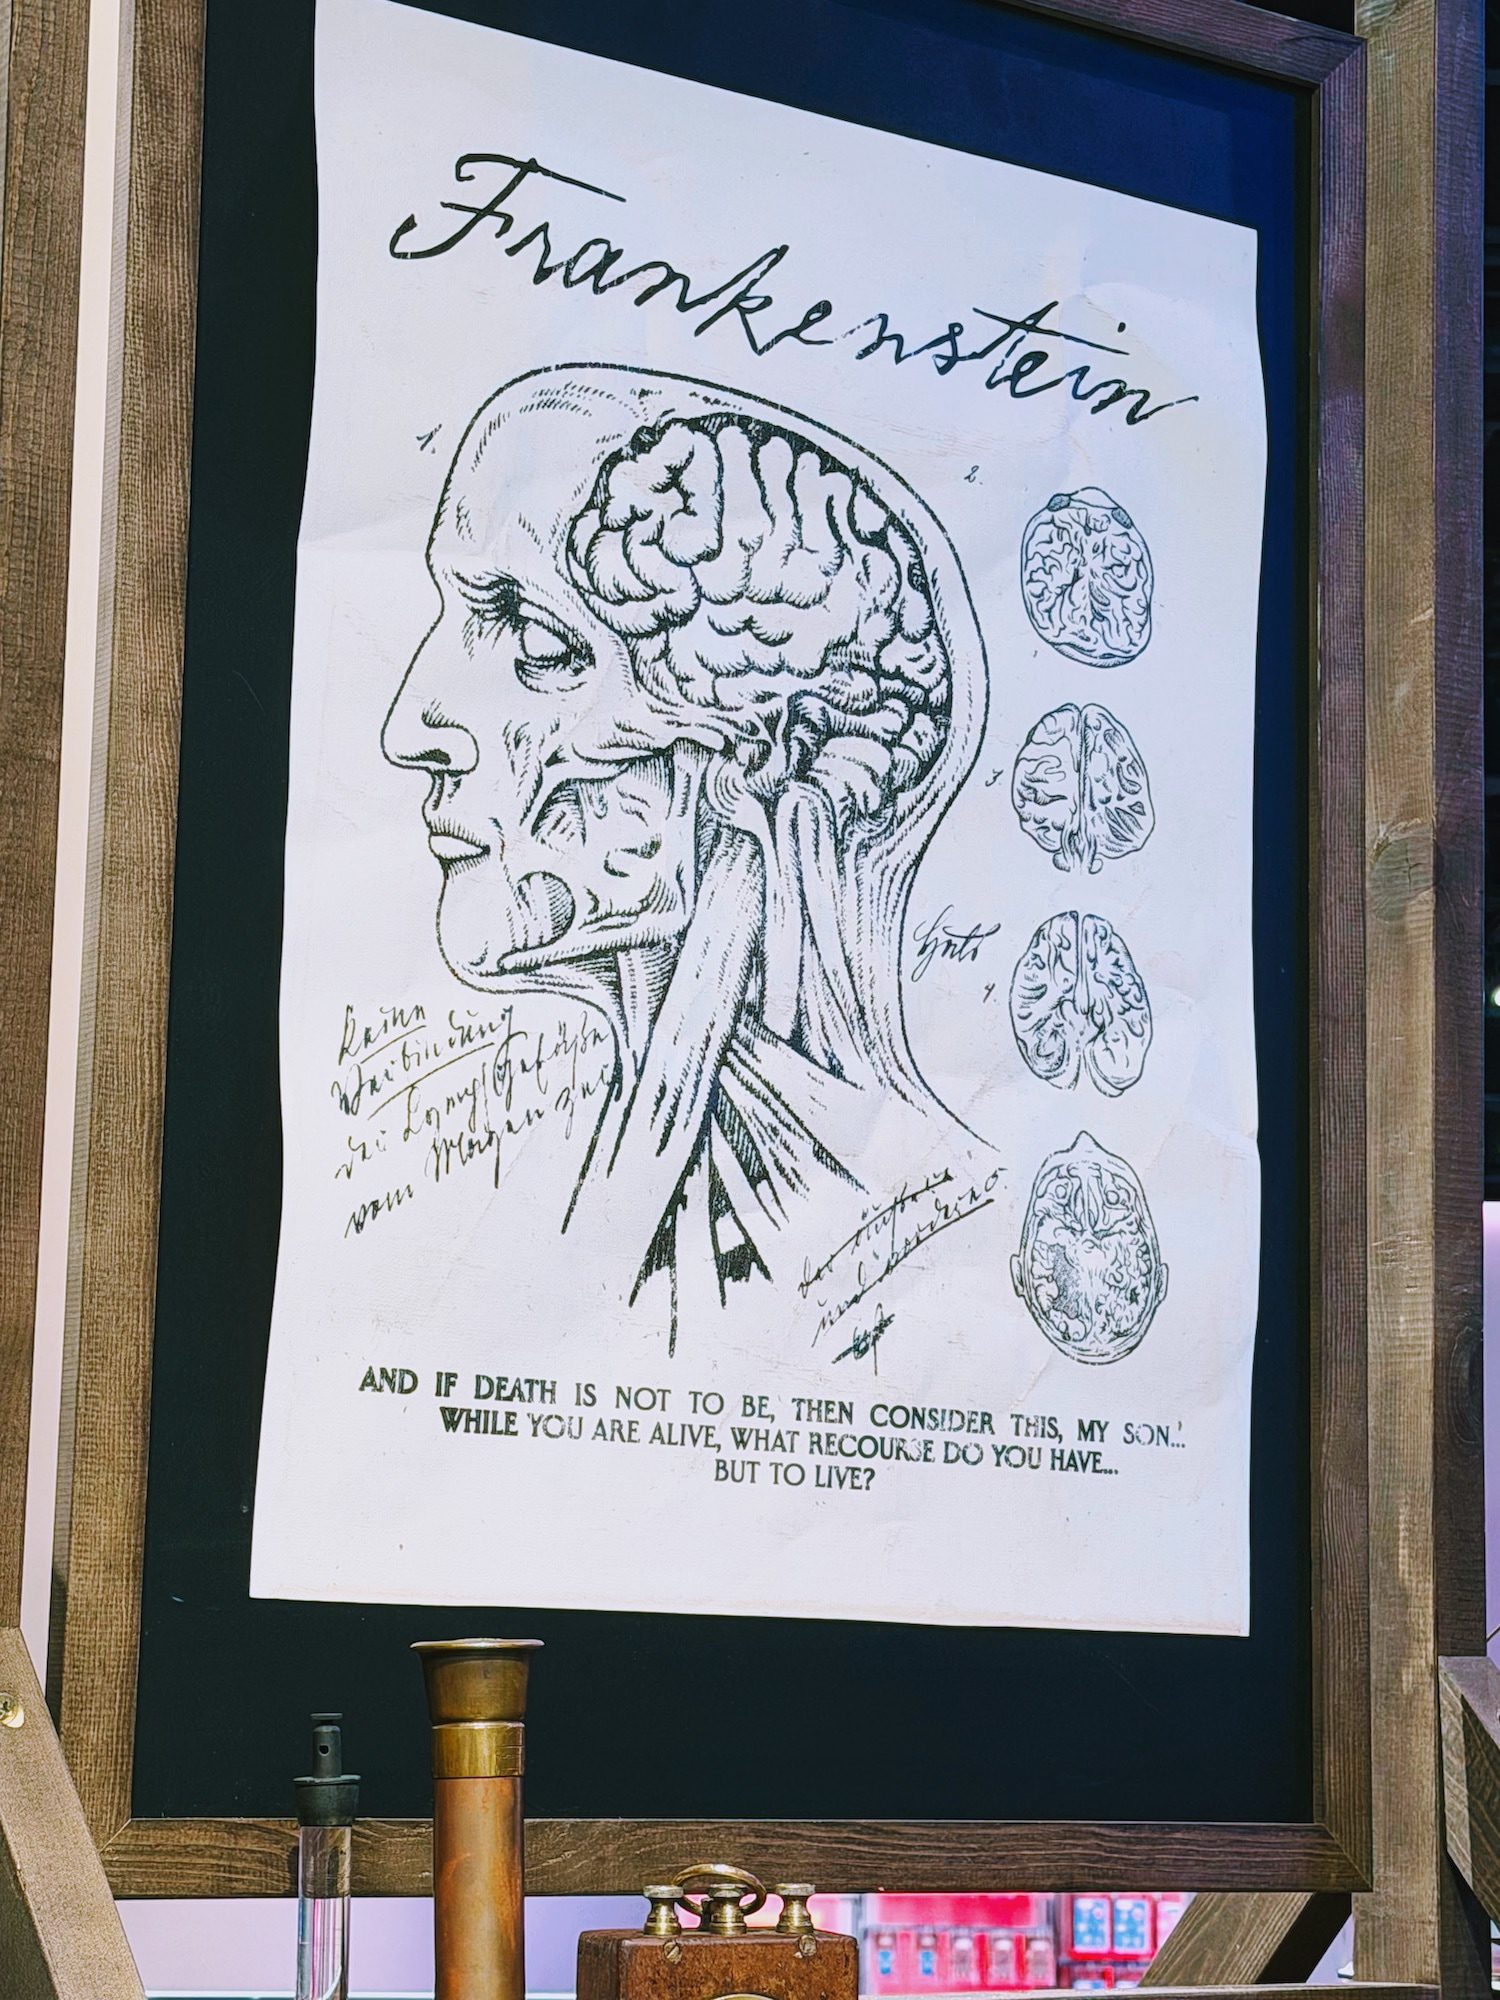 Frankenstein
1.
2.
3.
4.
Keine
Verbindung
der Lymphgefäße
vom Morgen
und
AND IF DEATH IS NOT TO BE, THEN CONSIDER THIS, MY SON...
WHILE YOU ARE ALIVE, WHAT RECOURSE DO YOU HAVE...
BUT TO LIVE?